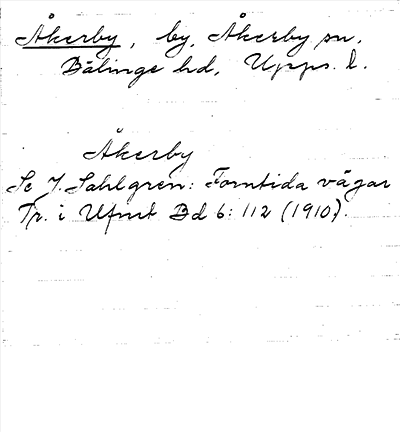 Åkerby, by, Åkerby sn.
Bälinge hd, Upps. l.
Åkerby
Se J. Sahlgren: Forntida vägar
Tr. i Ufmt Bd 6: 112 (1910).